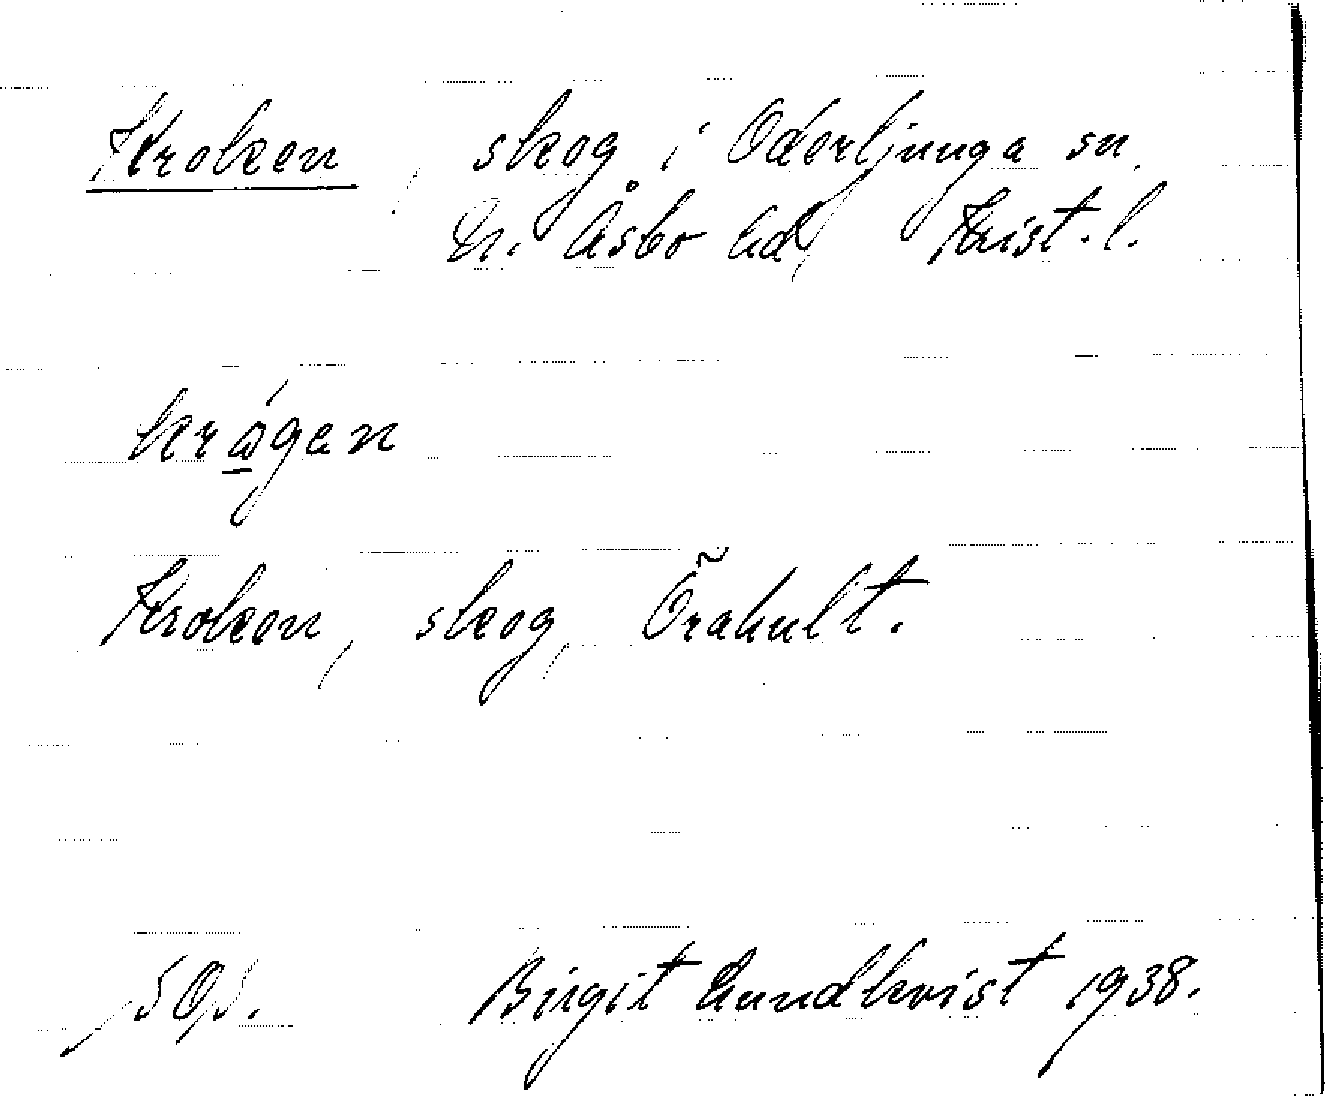 Kroken, skog i Oderljunga sn.
N. Åsbo hd, Krist. l.
krågen
Kroken, skog, Örahult.
Birgit Lundkvist 1938.